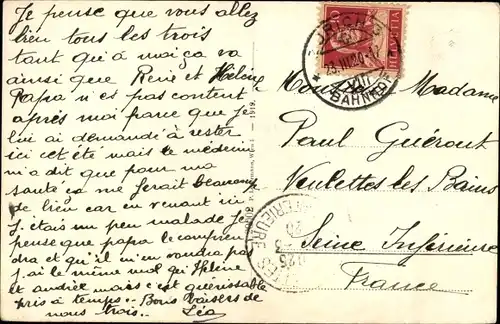 Je pense que vous allez
bien tous les trois
tant qu'à moi ça va
ainsi que René et Hélène
Papa n'es pas content
après moi parce que je
lui ai demandé à rester
ici cet été mais le médecin
m'a dit que pour ma
santé ça me ferait beaucoup
de bien car en venant ici
j'étais un peu malade je
pense que papa le compren
dra et qu'il m'en voudra pas
j'ai le même mal qu'Hélène
et andrée mais c'est guérissable
pris à temps.. Bons baisers de
nous trois.. Léa
1919.
HELVETIA
BAHNHOF
Monsieur Madame
Paul Guéront
Veulettes les Bains
Seine Inférieure
France
INFERIEURE